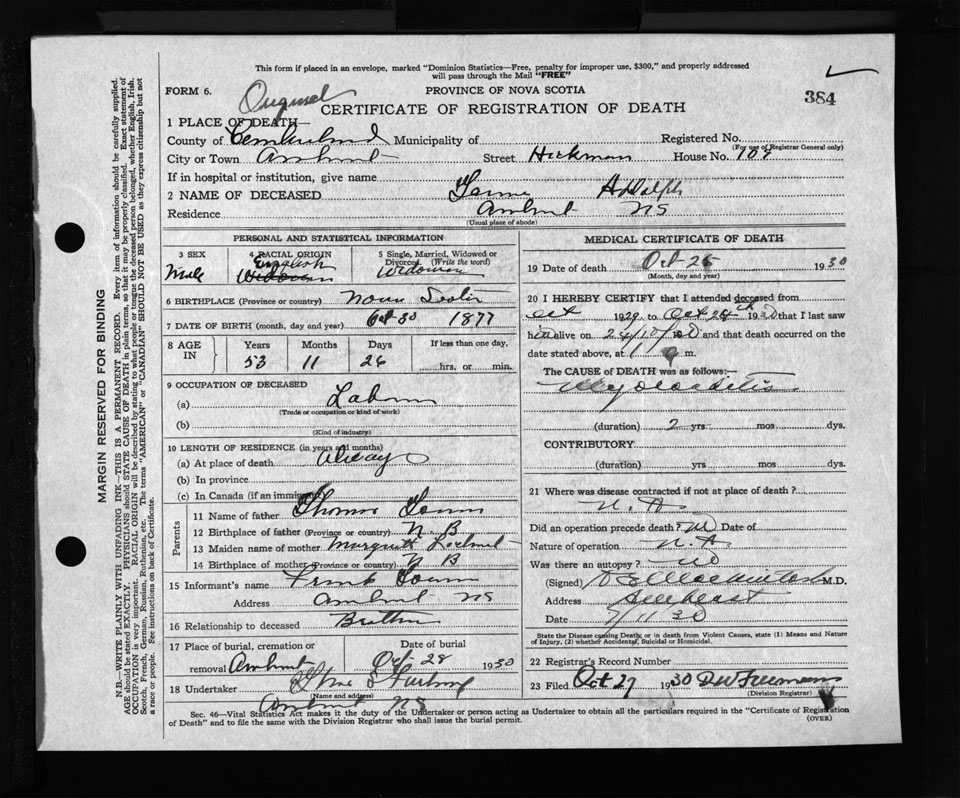 This form if placed in an envelope, marked "Dominion Statistics—Free, penalty for improper use, $300," and properly addressed
will pass through the Mail "FREE"
FORM 6. PROVINCE OF NOVA SCOTIA
384
CERTIFICATE OF REGISTRATION OF DEATH
1 PLACE OF DEATH—
County of Cumberland Municipality of Registered No.
(For use of Registrar General only)
City or Town Amherst Street Hickman House No. 107
If in hospital or institution, give name
2 NAME OF DECEASED Adolph
Residence Amherst NS
(Usual place of abode)
PERSONAL AND STATISTICAL INFORMATION
3 SEX 4 RACIAL ORIGIN 5 Single, Married, Widowed or
Divorced (Write the word)
Male English Widower
6 BIRTHPLACE (Province or country) Nova Scotia
7 DATE OF BIRTH (month, day and year) Oct 30 1877
8 AGE IN Years Months Days If less than one day,
53 11 26 hrs. or min.
9 OCCUPATION OF DECEASED
(a) Labourer
(Trade or occupation or kind of work)
(b)
(Kind of industry)
10 LENGTH OF RESIDENCE (in years and months)
(a) At place of death always
(b) In province
(c) In Canada (if an immigrant)
Parents
11 Name of father Thomas
12 Birthplace of father (Province or country) N. B
13 Maiden name of mother Margaret
14 Birthplace of mother (Province or country) N B
15 Informant's name Frank
Address Amherst NS
16 Relationship to deceased Brother
17 Place of burial, cremation or Date of burial
removal Amherst Oct 28 1930
18 Undertaker
(Name and address)
Amherst NS
MEDICAL CERTIFICATE OF DEATH
19 Date of death Oct 25 1930
(Month, day and year)
20 I HEREBY CERTIFY that I attended deceased from
Oct 1929 to Oct 1930 that I last saw
him alive on 24/10/30 and that death occurred on
date stated above, at 1 m.
The CAUSE of DEATH was as follows:—
Myocarditis
(duration) 2 yrs mos dys.
CONTRIBUTORY
(duration) yrs mos dys.
21 Where was disease contracted if not at place of death?
N. A
Did an operation precede death? Date of
Nature of operation N. A
Was there an autopsy? No
(Signed) Mackintosh M.D.
Address Amherst
Date 30
State the Disease causing Death; or in death from Violent Causes, state (1) Means and Nature
of Injury, (2) whether Accidental, Suicidal or Homicidal.
22 Registrar's Record Number
23 Filed Oct 27 1930
(Division Registrar)
Sec. 46—Vital Statistics Act makes it the duty of the Undertaker or person acting as Undertaker to obtain all the particulars required in the "Certificate of Registration
of Death" and to file the same with the Division Registrar who shall issue the burial permit. (OVER)
MARGIN RESERVED FOR BINDING
N.B.—WRITE PLAINLY WITH UNFADING INK—THIS IS A PERMANENT RECORD. Every item of information should be carefully supplied.
AGE should be stated EXACTLY. PHYSICIANS should STATE CAUSE OF DEATH in plain terms, so that it may be properly classified. Exact statement of
OCCUPATION is very important. RACIAL ORIGIN will be described by stating to what people or tongue the deceased person belonged, whether English, Irish,
Scotch, French, German, Russian, Ruthenian, etc. The terms "AMERICAN" or "CANADIAN" SHOULD NOT BE USED as they express citizenship but not
a race or people. See instructions on back of Certificate.